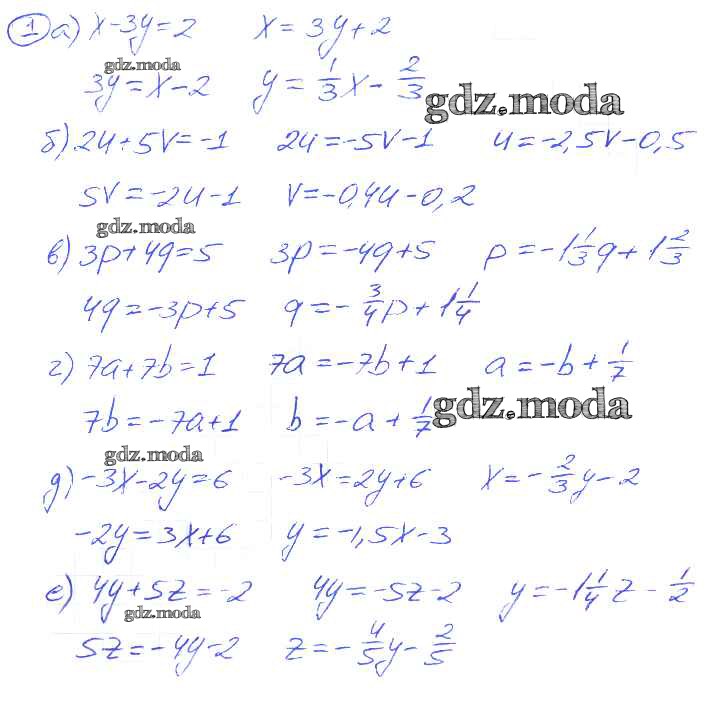 1 а) x-3y=2 x=3y+2
gdz.moda
3y=x-2 y=1/3x-2/3
gdz.moda
б) 2u+5v=-1 2u=-5v-1 u=-2,5v-0,5
5v=-2u-1 v=-0,4u-0,2
gdz.moda
в) 3p+4q=5 3p=-4q+5 p=-1 1/3q+1 2/3
4q=-3p+5 q=-3/4p+1 1/4
г) 7a+7b=1 7a=-7b+1 a=-b+1/7
7b=-7a+1 b=-a+1/7
gdz.moda
gdz.moda
д) -3x-2y=6 -3x=2y+6 x=-2/3y-2
-2y=3x+6 y=-1,5x-3
е) 4y+5z=-2 4y=-5z-2 y=-1 1/4z-1/2
gdz.moda
5z=-4y-2 z=-4/5y-2/5